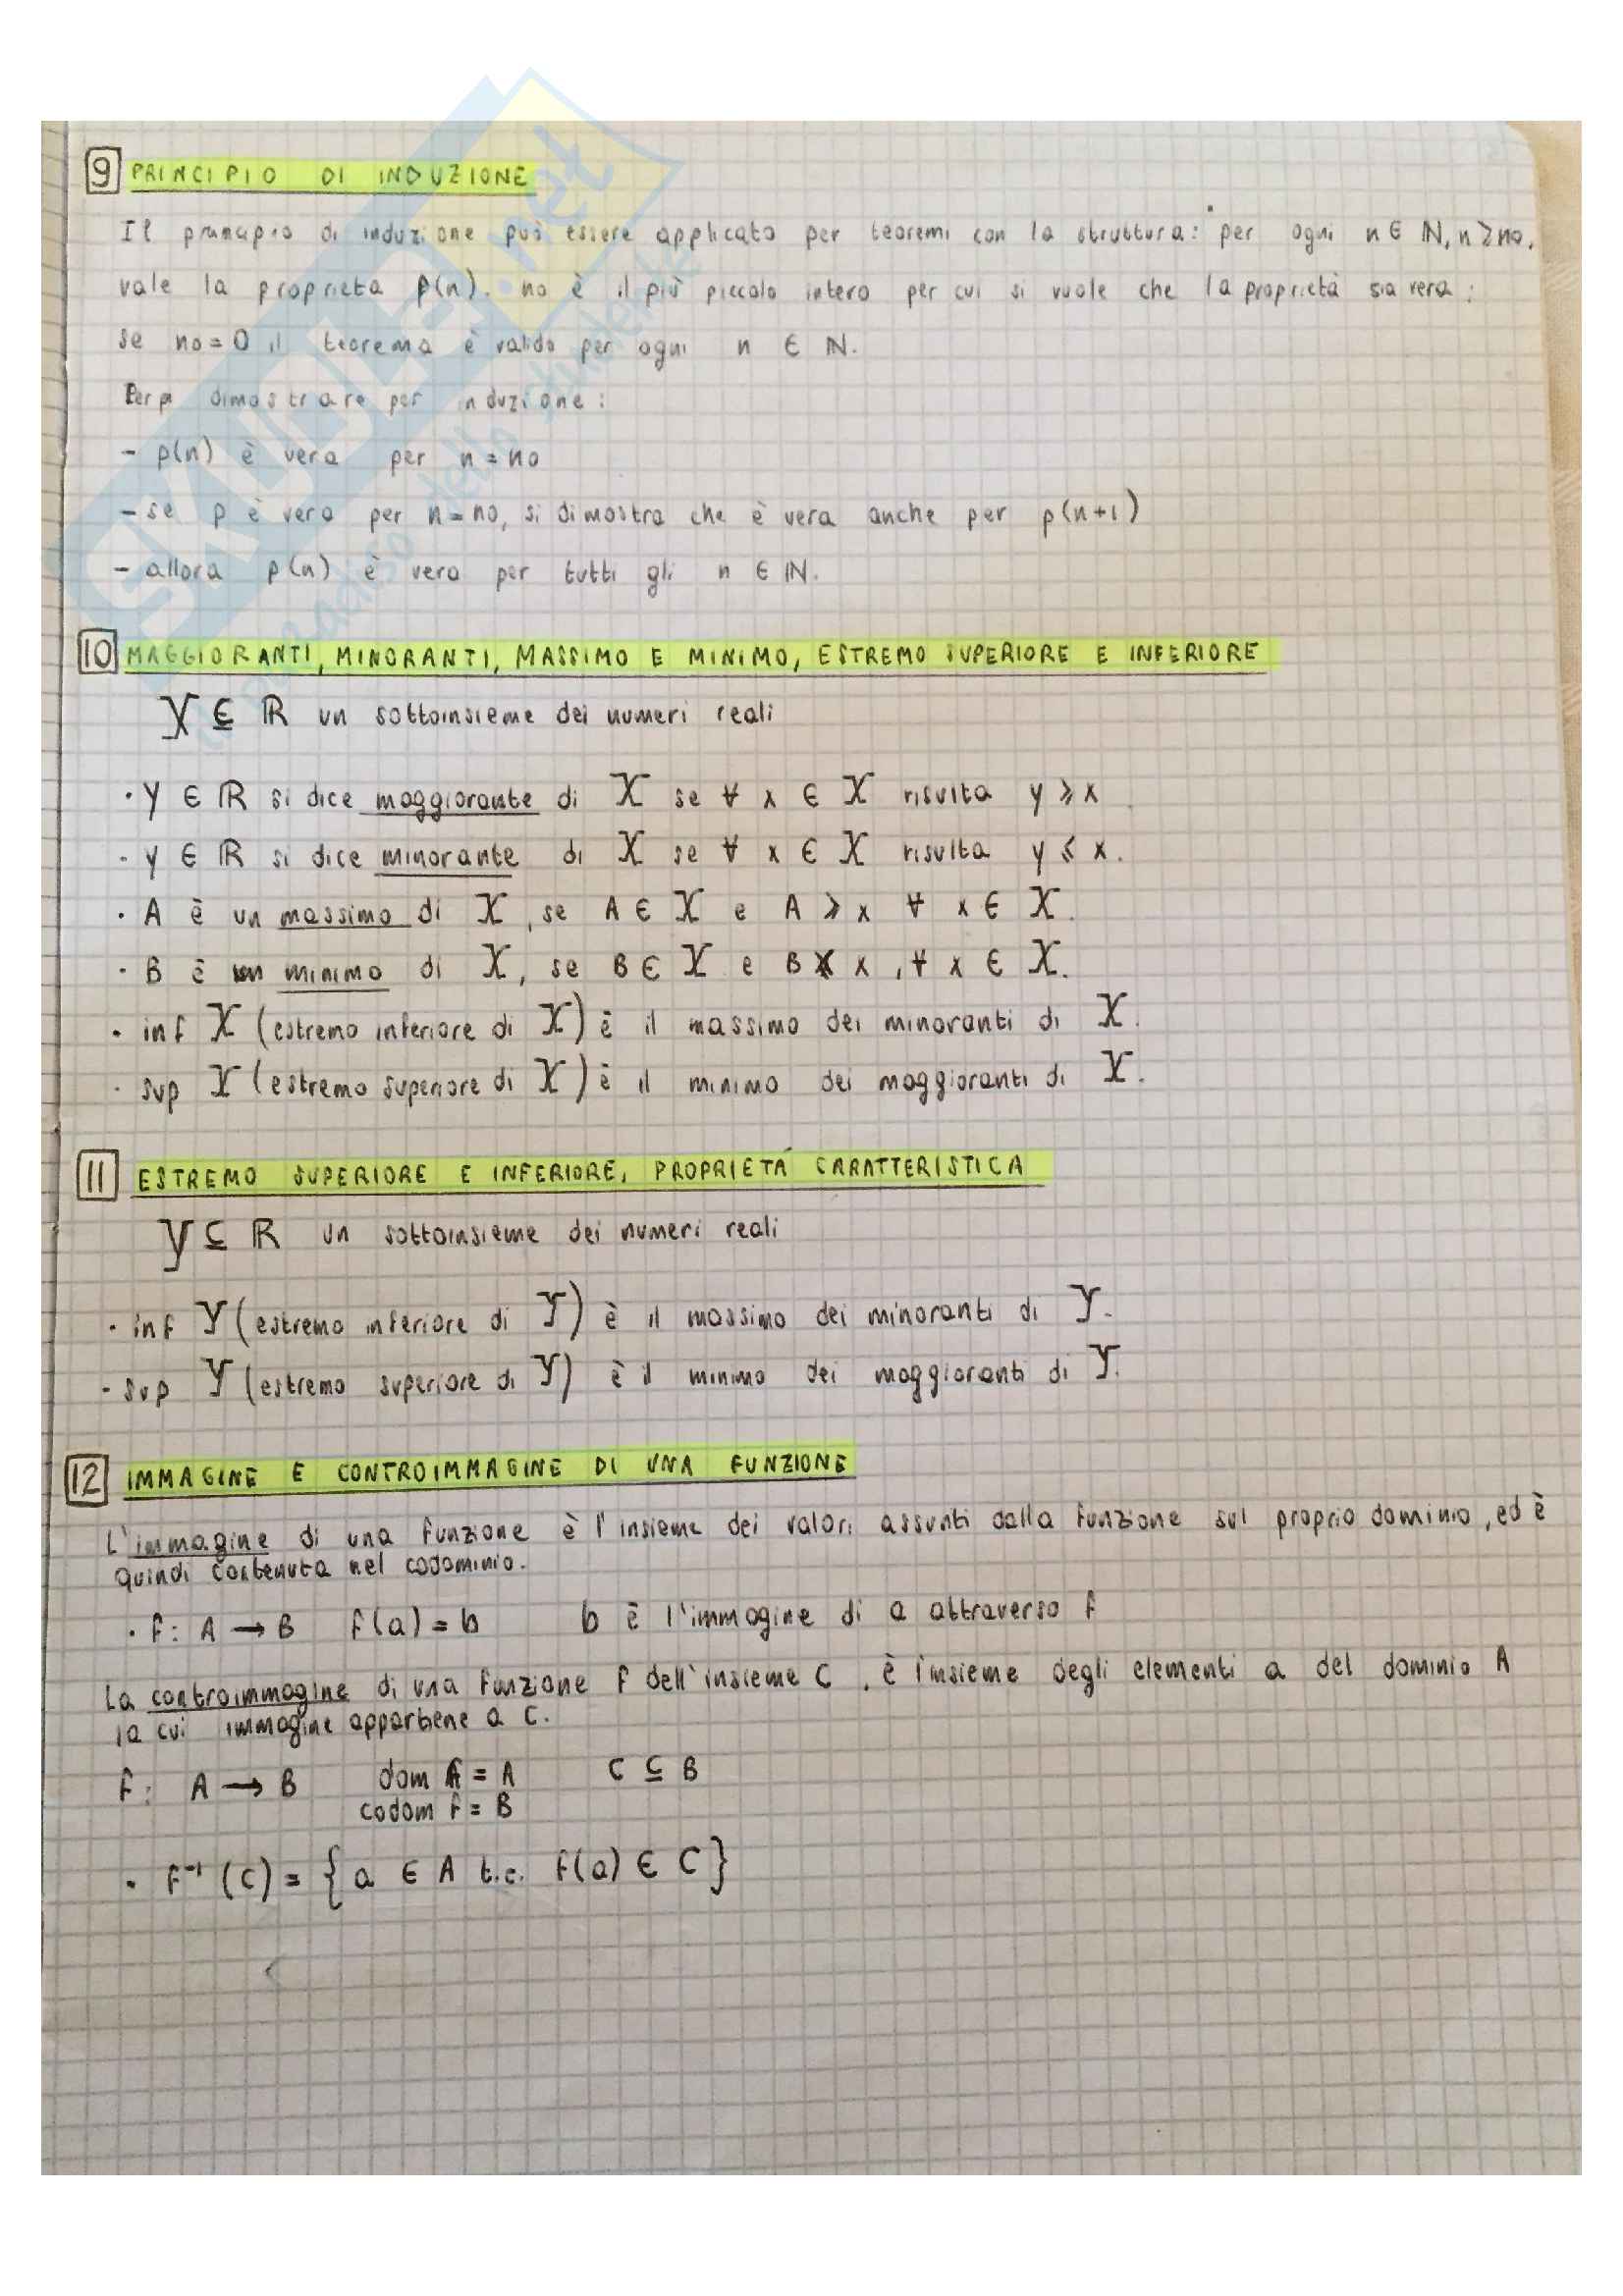 9 PRINCIPIO DI INDUZIONE
Il principio di induzione può essere applicato per teoremi con la struttura: per ogni n ∈ ℕ, n ⩾ n0,
vale la proprietà p(n). n0 è il più piccolo intero per cui si vuole che la proprietà sia vera:
se n0 = 0 il teorema è valido per ogni n ∈ ℕ.
Per dimostrare per induzione:
- p(n) è vera per n = n0
- se p è vera per n = n0, si dimostra che è vera anche per p(n+1)
- allora p(n) è vera per tutti gli n ∈ ℕ.
10 MAGGIORANTI, MINORANTI, MASSIMO E MINIMO, ESTREMO SUPERIORE E INFERIORE
X ⊆ ℝ un sottoinsieme dei numeri reali
· y ∈ ℝ si dice maggiorante di X se ∀ x ∈ X risulta y ⩾ x
· y ∈ ℝ si dice minorante di X se ∀ x ∈ X risulta y ⩽ x.
· A è un massimo di X, se A ∈ X e A ⩾ x ∀ x ∈ X.
· B è un minimo di X, se B ∈ X e B x, ∀ x ∈ X.
· inf X (estremo inferiore di X) è il massimo dei minoranti di X.
· sup X (estremo superiore di X) è il minimo dei maggioranti di X.
11 ESTREMO SUPERIORE E INFERIORE, PROPRIETÁ CARATTERISTICA
Y ⊆ ℝ un sottoinsieme dei numeri reali
· inf Y (estremo inferiore di Y) è il massimo dei minoranti di Y.
· sup Y (estremo superiore di Y) è il minimo dei maggioranti di Y.
12 IMMAGINE E CONTROIMMAGINE DI UNA FUNZIONE
L'immagine di una funzione è l'insieme dei valori assunti dalla funzione sul proprio dominio, ed è
quindi contenuta nel codominio.
· f: A → B f(a) = b b è l'immagine di a attraverso f
La controimmagine di una funzione f dell'insieme C, è l'insieme degli elementi a del dominio A
la cui immagine appartiene a C.
f: A → B dom f = A C ⊆ B
codom f = B
· f⁻¹(C) = {a ∈ A t.c. f(a) ∈ C}